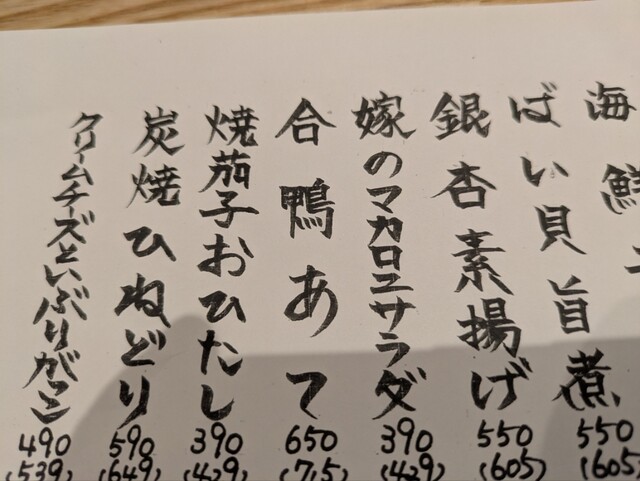 海鮮
ばい貝旨煮
550
(605)
銀杏素揚げ
550
(605)
嫁のマカロニサラダ
390
(429)
合鴨あて
650
(715)
焼茄子おひたし
390
(429)
炭焼ひねどり
590
(649)
クリームチーズといぶりがっこ
490
(539)